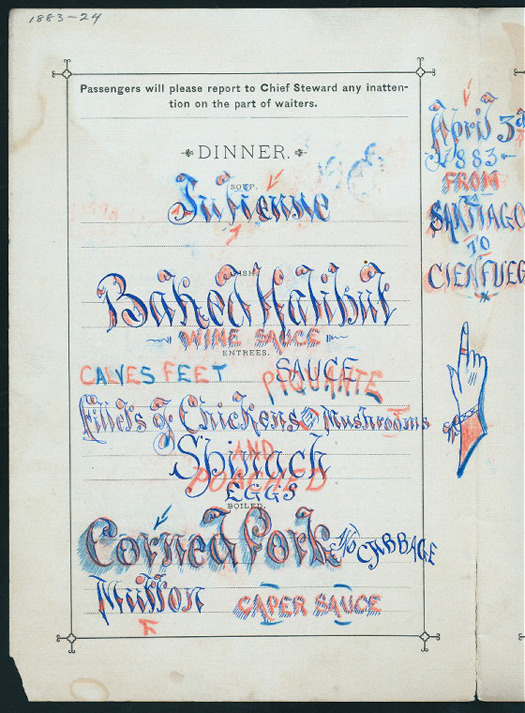 1883-24
Passengers will please report to Chief Steward any inatten-
tion on the part of waiters.
DINNER.
SOUP.
Julienne
FISH.
Baked Halibut
WINE SAUCE
ENTREES.
CALVES FEET SAUCE PIQUANTE
Fillets of Chickens & Mushrooms
Spinach AND
POACHED
EGGS
BOILED.
Corned Pork & CABBAGE
Mutton CAPER SAUCE
April 3d
1883
FROM
SANTIAGO
TO
CIENFUEG